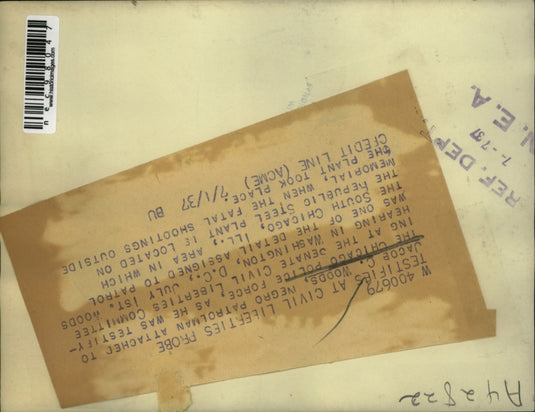 W 400679
TESTIFIES AT CIVIL LIBERTIES PROBE
JACOB C. WOODS, NEGRO PATROLMAN ATTACHED TO
THE CHICAGO POLICE FORCE, AS HE WAS TESTIFY-
ING AT THE SENATE CIVIL LIBERTIES COMMITTEE
HEARING IN WASHINGTON, D.C., JULY 1ST. WOODS
WAS ONE OF THE DETAIL ASSIGNED TO PATROL
THE SOUTH CHICAGO, ILL., AREA IN WHICH
THE REPUBLIC STEEL PLANT IS LOCATED ON
MEMORIAL, WHEN THE FATAL SHOOTINGS OUTSIDE
THE PLANT TOOK PLACE.
CREDIT LINE (ACME) 7/1/37 BU
A42822
REF. DEP
N.E.A.
www.historicimages.com
nec98047